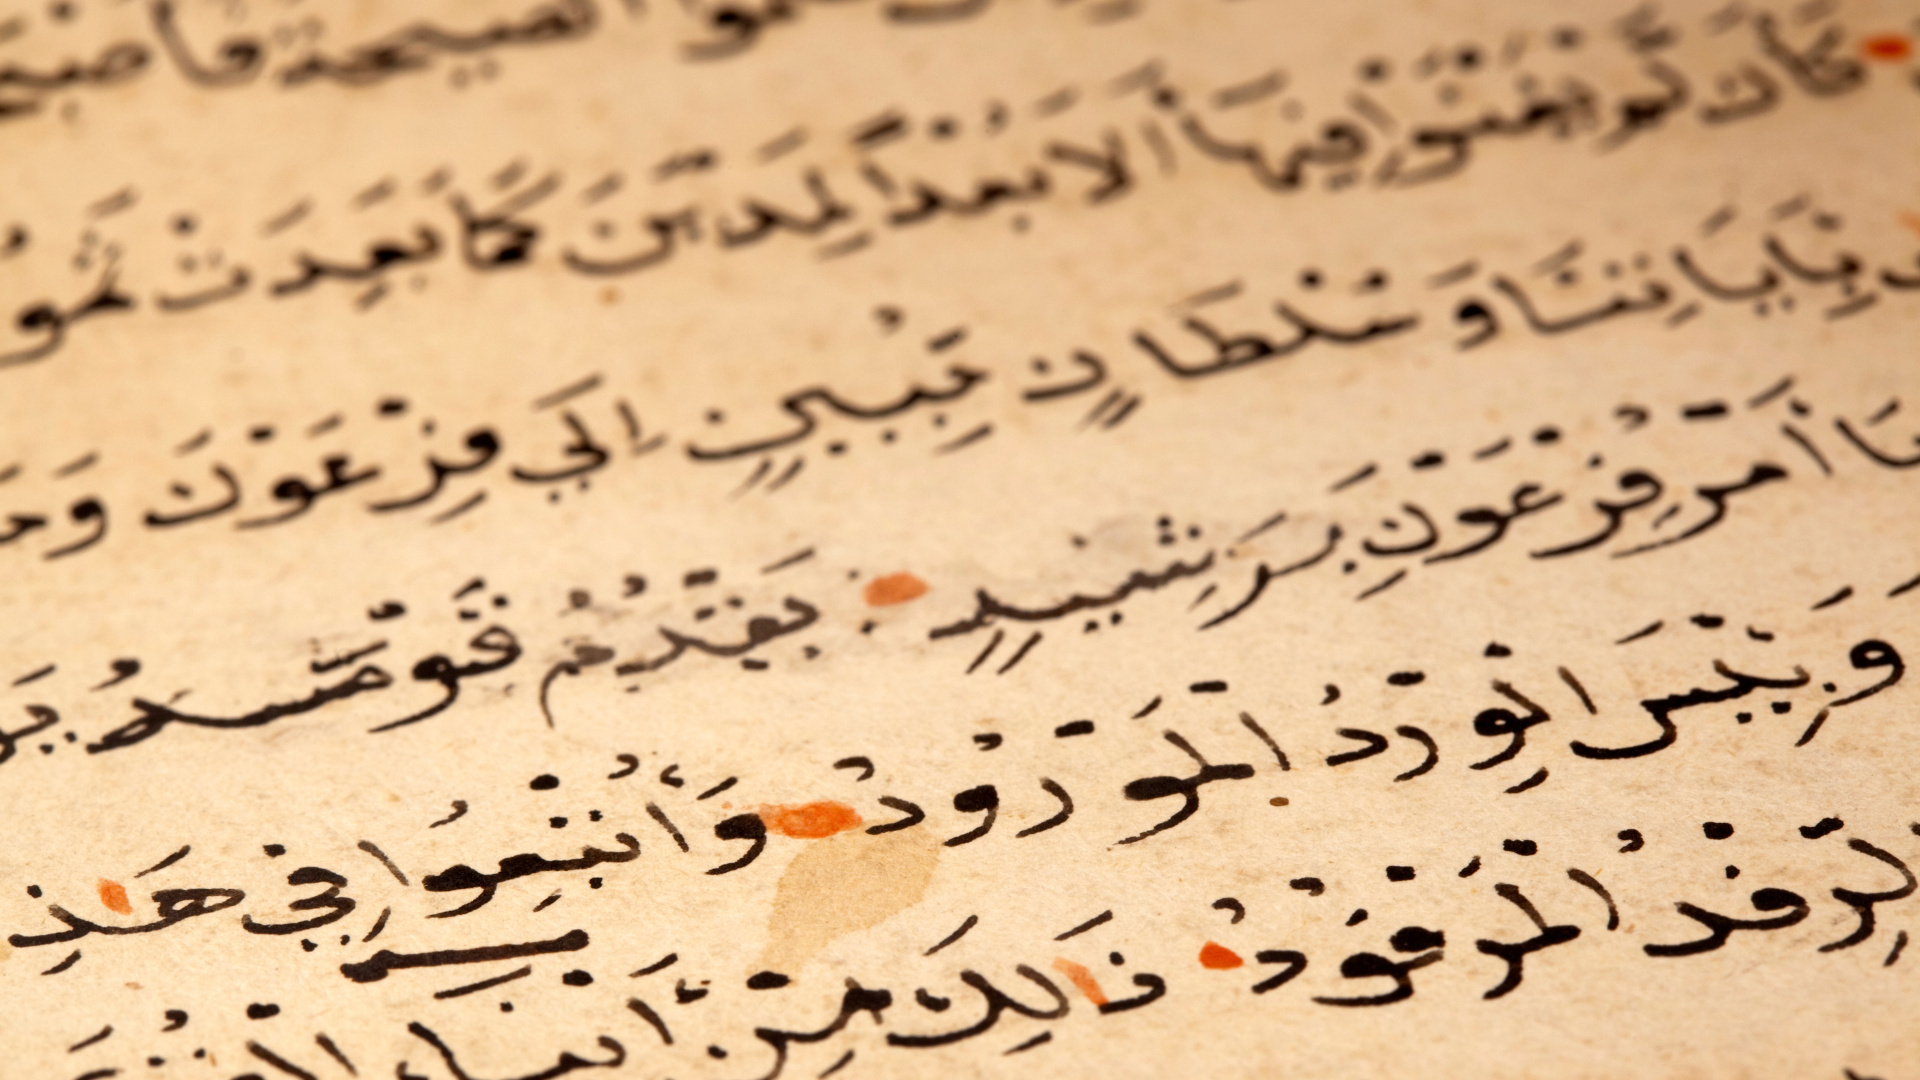 ظَلَمُوا الصَّيْحَةُ فَأَصْبَحُـ
كَأَن لَّمْ يَغْنَوْا فِيهَا أَلَا بُعْدًا لِّمَدْيَنَ كَمَا بَعِدَتْ ثَمُو
بِآيَاتِنَا وَسُلْطَانٍ مُّبِينٍ إِلَى فِرْعَوْنَ وَمَـ
مَا أَمْرُ فِرْعَوْنَ بِرَشِيدٍ يَقْدُمُ قَوْمَهُ يَو
وَبِيْسَ الْوِرْدُ الْمَوْرُودُ وَأُتْبِعُوا فِي هَذِ
الرِّفْدُ الْمَرْفُودُ ذَالِكَ مِنْ أَنْبَاءِ الْقُرَ